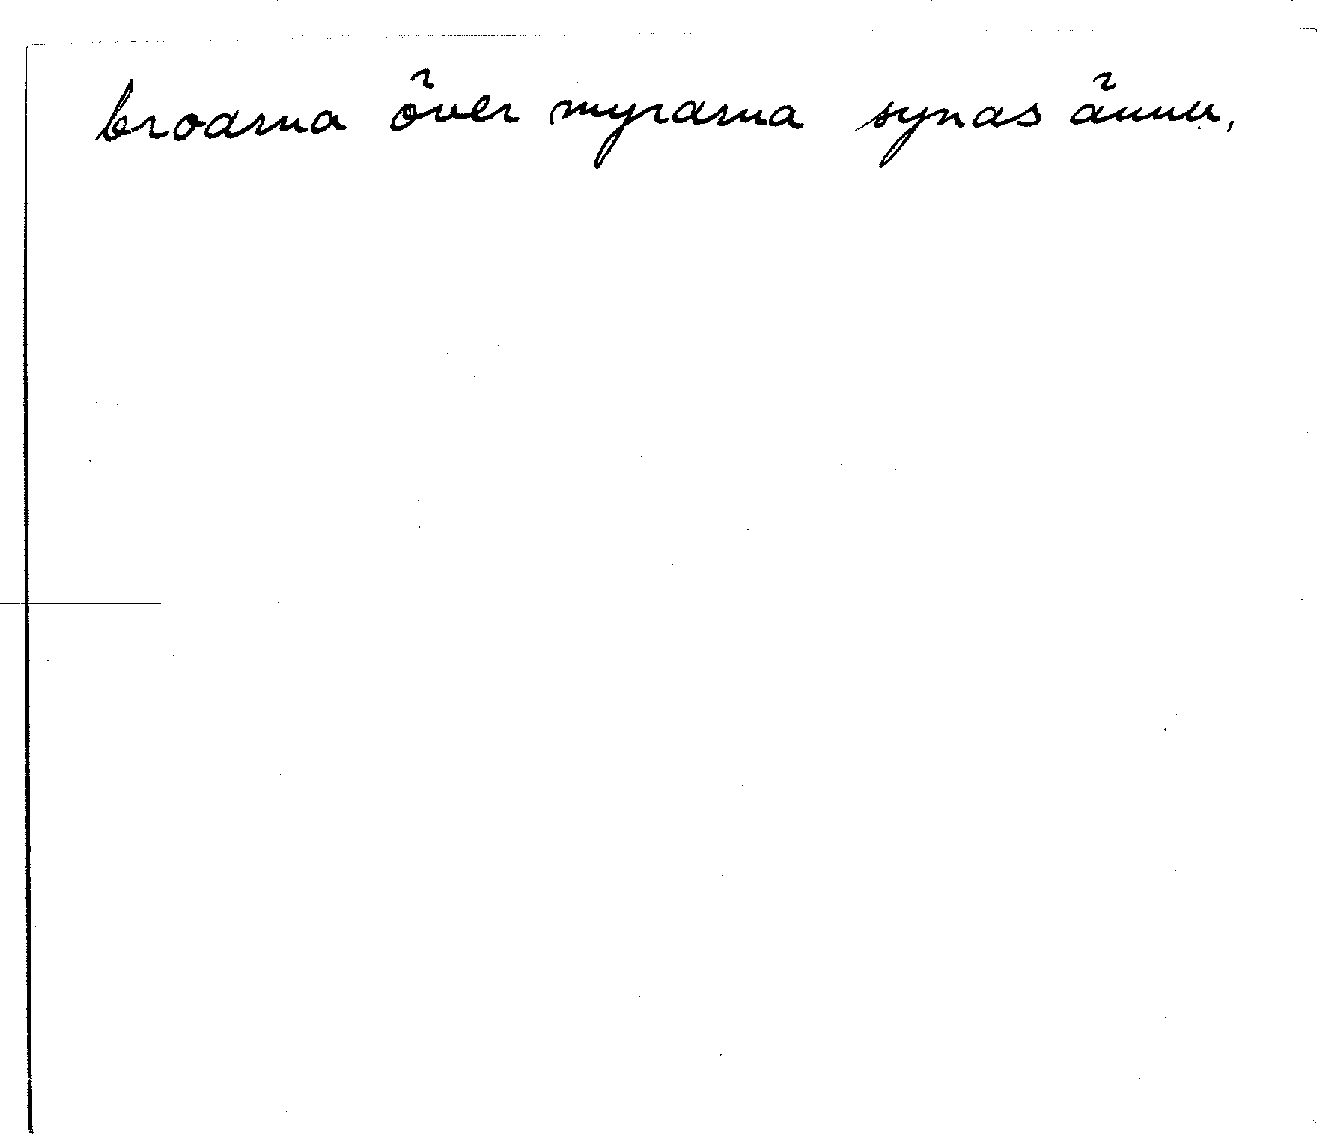 broarna över myrarna synas ännu,